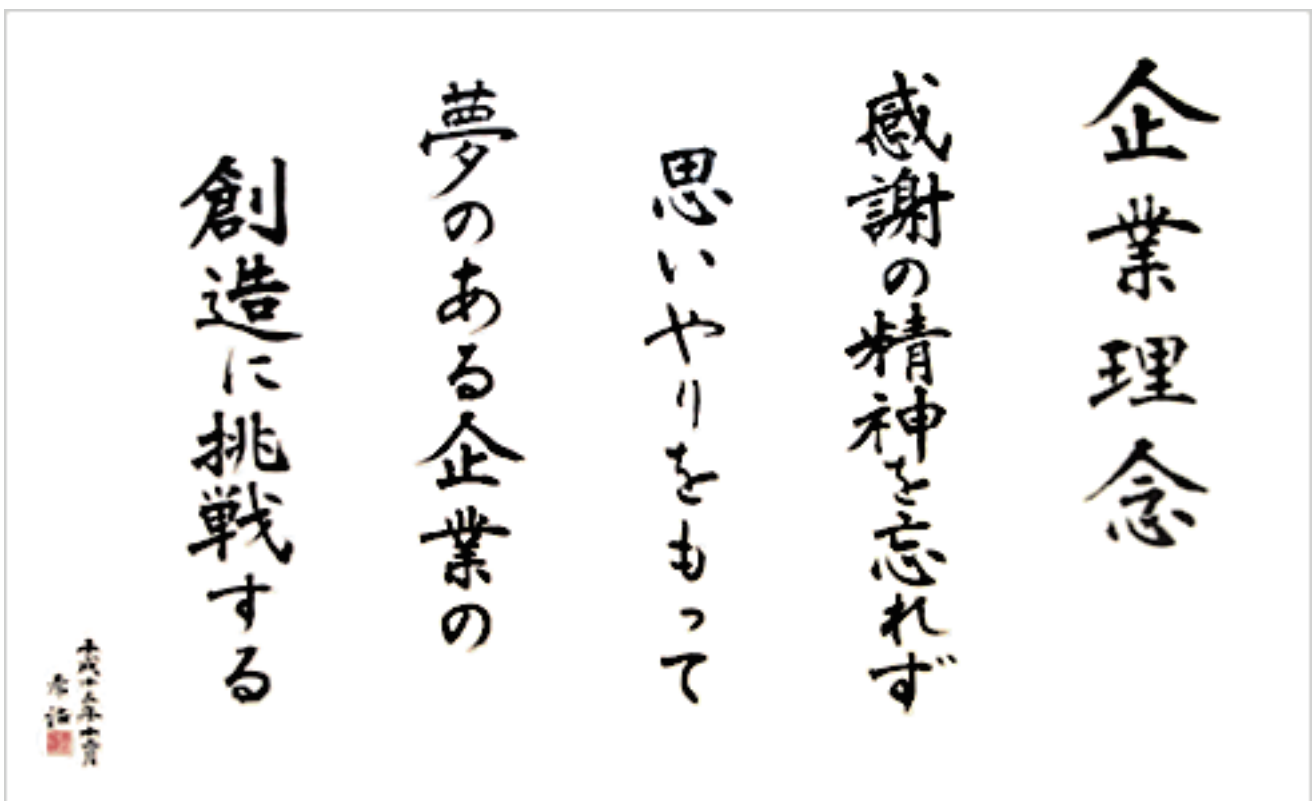 企業理念
感謝の精神を忘れず
思いやりをもって
夢のある企業の
創造に挑戦する